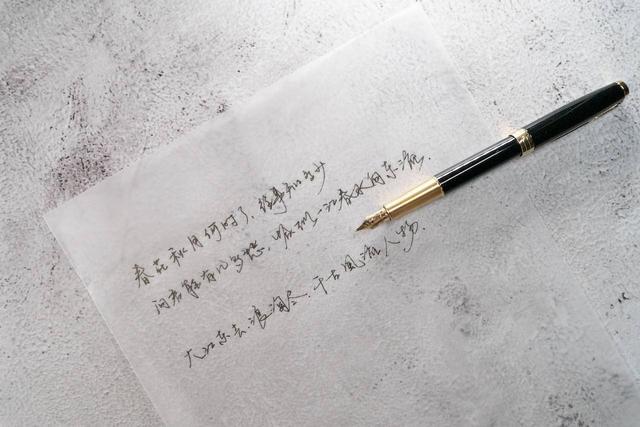 春花秋月何时了,往事知多少
问君能有几多愁,恰似一江春水向东流.
大江东去.浪淘尽.千古风流人物.